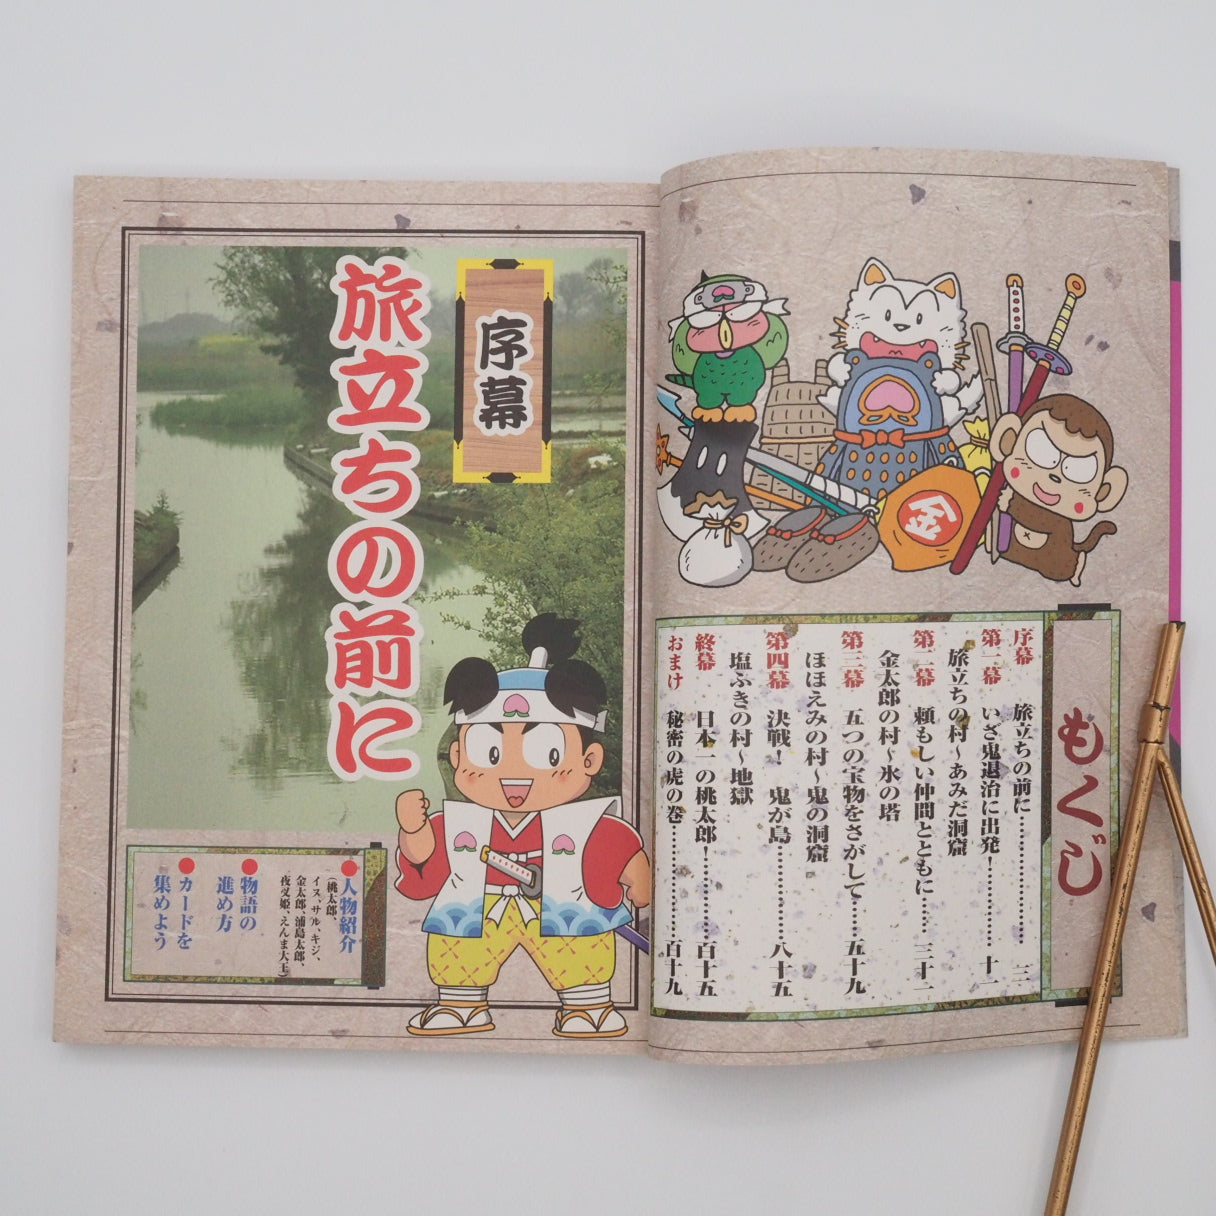 金
もくじ
序幕 旅立ちの前に………………… 三
第一幕 いざ鬼退治に出発!………… 十一
旅立ちの村~あみだ洞窟
第二幕 頼もしい仲間とともに…… 三十一
金太郎の村~氷の塔
第三幕 五つの宝物をさがして…… 五十九
ほほえみの村~鬼の洞窟
第四幕 決戦! 鬼が島…………… 八十五
塩ふきの村~地獄
終幕 日本一の桃太郎!………… 百十五
おまけ 秘密の虎の巻…………… 百十九
序幕
旅立ちの前に
●人物紹介
(桃太郎、
イヌ、サル、キジ、
金太郎、浦島太郎、
夜叉姫、えんま大王)
●物語の
進め方
●カードを
集めよう